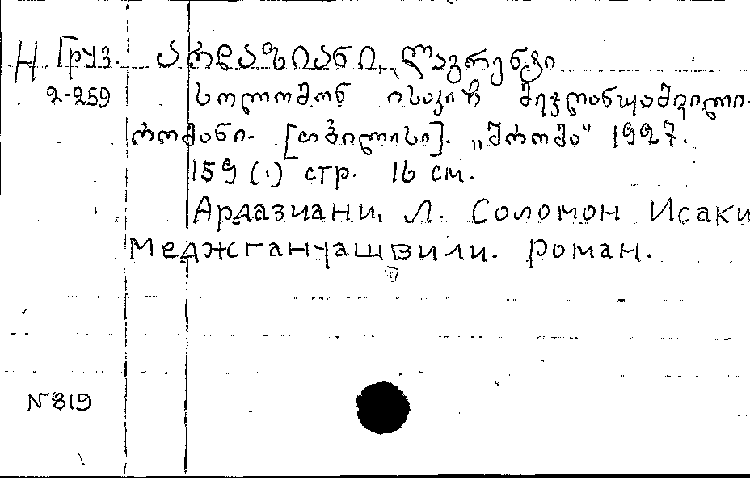 Н Груз. არდაზიანი, ლავრენტი
2-259 სოლომონ ისაკიჩ მეჯღანუაშვილი.
რომანი. [თბილისი]. „შრომა" 1927.
159 (1) стр. 16 см.
Ардазиани, Л. Соломон Исаки
Меджганчашвили. Роман.
N 819